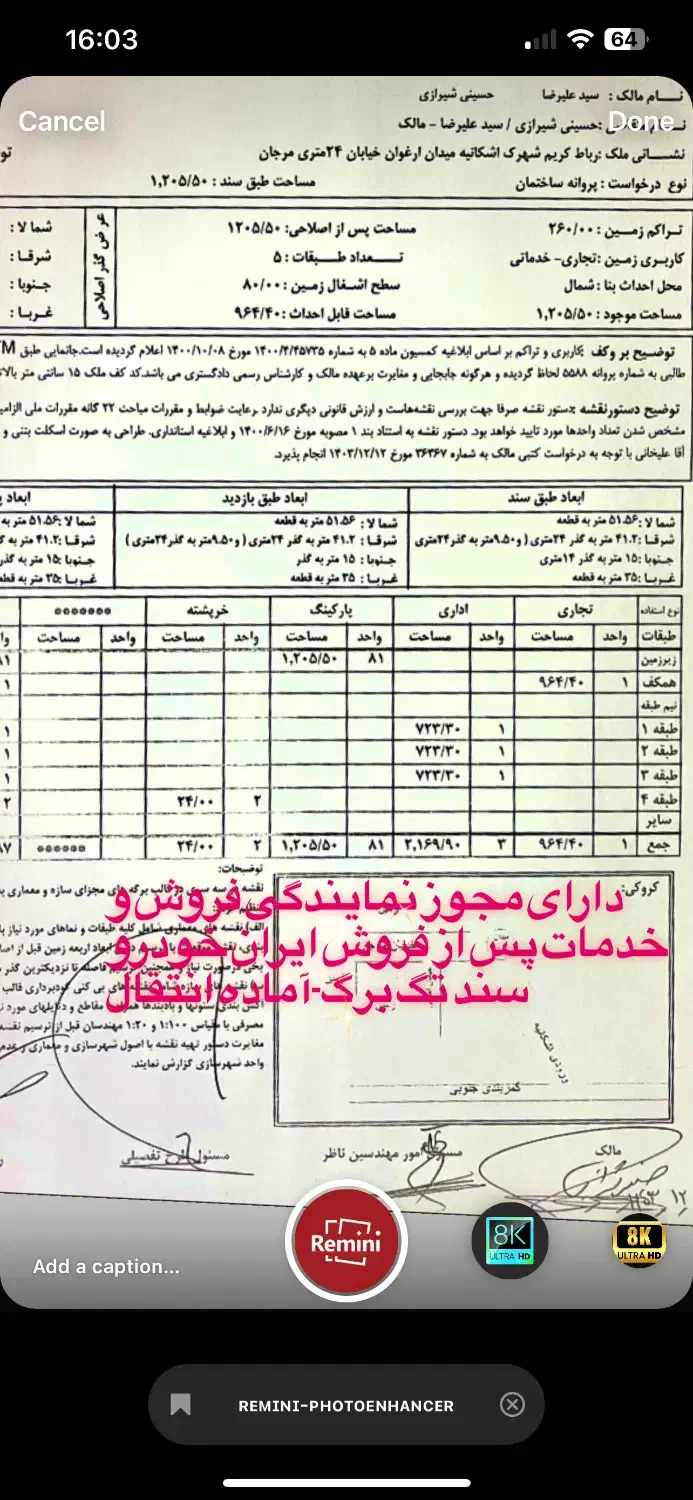 16:03
64
Cancel
Done
نــام مالک : سید علیرضا حسینی شیرازی
حسینی شیرازی / سید علیرضا - مالک
نشــانی ملک :رباط کریم شهرک اشکانیه میدان ارغوان خیابان ۲۴متری مرجان
نوع درخواست : پروانه ساختمان مساحت طبق سند : ۱,۲۰۵/۵۰
تــراکم زمیــن : ۲۶۰/۰۰ مساحت پس از اصلاحی: ۱۲۰۵/۵۰ شما لا :
کاربــری زمین :تجاری- خدماتی تــــعداد طبــقات : ۵ شرقـا :
محل احداث بنا : شمال سطح اشـغال زمین : ۸۰/۰۰ جنوبا :
مساحت موجود : ۱,۲۰۵/۵۰ مساحت قابل احداث : ۹۶۴/۴۰ غــربـا :
عرض گذر اصلاحی
توضیح بر وکف :کاربری و تراکم بر اساس ابلاغیه کمسیون ماده ۵ به شماره ۱۴۰۰/۴/۴۵۷۳۵ مورخ ۱۴۰۰/۱۰/۰۸ اعلام گردیده است.جانمایی طبق TM
طالبی به شماره پروانه ۵۵۸۸ لحاظ گردیده و هرگونه جابجایی و مغایرت برعهده مالک و کارشناس رسمی دادگستری می باشد.کد کف ملک ۱۵ سانتی متر بالا
توضیح دستورنقشه :دستور نقشه صرفا جهت بررسی نقشه‌هاست و ارزش قانونی دیگری ندارد .رعایت ضوابط و مقررات مباحث ۲۲ گانه مقررات ملی الزامی
مشخص شدن تعداد واحدها مورد تایید خواهد بود. دستور نقشه به استناد بند ۱ مصوبه مورخ ۱۴۰۰/۶/۱۶ و ابلاغیه استانداری. طراحی به صورت اسکلت بتنی و
آقا علیخانی با توجه به درخواست کتبی مالک به شماره ۳۶۳۶۷ مورخ ۱۴۰۳/۱۲/۱۲ انجام پذیرد.
ابعاد طبق سند ابعاد طبق بازدید ابعاد
شما لا :۵۱.۵۶ متر به قطعه شما لا : ۵۱.۵۶ متر به قطعه شما لا :۵۱.۵۶ متر به
شرقـا :۴۱.۲ متر به گذر ۲۴متری ( و۹.۵۰متر به گذر۲۴متری شرقـا : ۴۱.۲ متر به گذر ۲۴متری ( و۹.۵۰متر به گذر۲۴متری ) شرقـا :۴۱.۲ متر به
جنوبا :۱۵ متر به گذر ۱۴متری جنوبا : ۱۵ متر به گذر جنوبا :۱۵ متر به گذر
غــربـا :۳۵ متر به قطعه غــربـا : ۳۵ متر به قطعه غــربـا :۳۵ متر به قطعه
نوع استفاده تجاری اداری پارکینگ خرپشته *******
طبقات واحد مساحت واحد مساحت واحد مساحت واحد مساحت واحد مساحت
زیرزمین ۸۱ ۱,۲۰۵/۵۰ ۸۱
همکف ۱ ۹۶۴/۴۰ ۱
نیم طبقه
طبقه ۱ ۱ ۷۲۳/۳۰ ۱
طبقه ۲ ۱ ۷۲۳/۳۰ ۱
طبقه ۳ ۱ ۷۲۳/۳۰ ۱
طبقه ۴ ۲ ۲۴/۰۰ ۲
سایر
جمع ۱ ۹۶۴/۴۰ ۳ ۲,۱۶۹/۹۰ ۸۱ ۱,۲۰۵/۵۰ ۲ ۲۴/۰۰ ****** ۸۷
کروکی:
توضیحات:
دارای مجوز نمایندگی فروش و
خدمات پس از فروش ایران خودرو
سند تگ برگ-آماده انتقال
مصرفی با مقیاس ۱:۱۰۰ و ۱:۲۰ مهندسان قبل از ترسیم نقشه
مغایرت دستور تهیه نقشه با اصول شهرسازی و معماری و
واحد شهرسازی گزارش نمایند.
ورودی اشکانیه
کمربندی جنوبی
مالک امور مهندسین ناظر مسئول طرح تفصیلی
Add a caption...
Remini
8K
ULTRA HD
8K
ULTRA HD
REMINI-PHOTOENHANCER